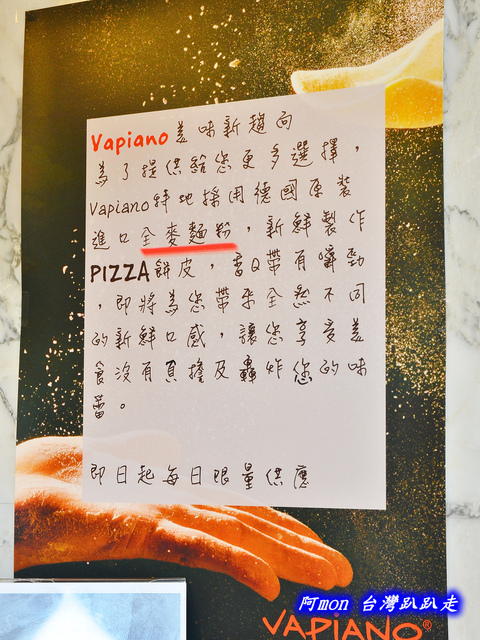 Vapiano 美味新趨向
為了提供給您更多選擇，
Vapiano特地採用德國原裝
進口全麥麵粉，新鮮製作
PIZZA餅皮，香Q帶有嚼勁
，即將為您帶來全然不同
的新鮮口感，讓您享受美
食沒有負擔及轟炸您的味
蕾。
即日起每日限量供應
阿mon 台灣趴趴走
VAPIANO®